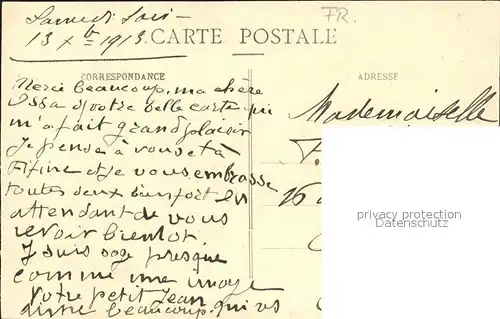 Samedi Soir
13 Xbre 1913.
FR.
CARTE POSTALE
CORRESPONDANCE
ADRESSE
Merci beaucoup, ma chere
Issa de votre belle carte qui
m'a fait grand plaisir
Je pense à vous et à
Fifine et je vous embrasse
toutes deux bien fort en
attendant de vous
revoir bientôt.
Je suis sage presque
comme une image
Votre petit Jean
aime beaucoup. qui vs
Mademoiselle
F.
16
privacy protection
Datenschutz